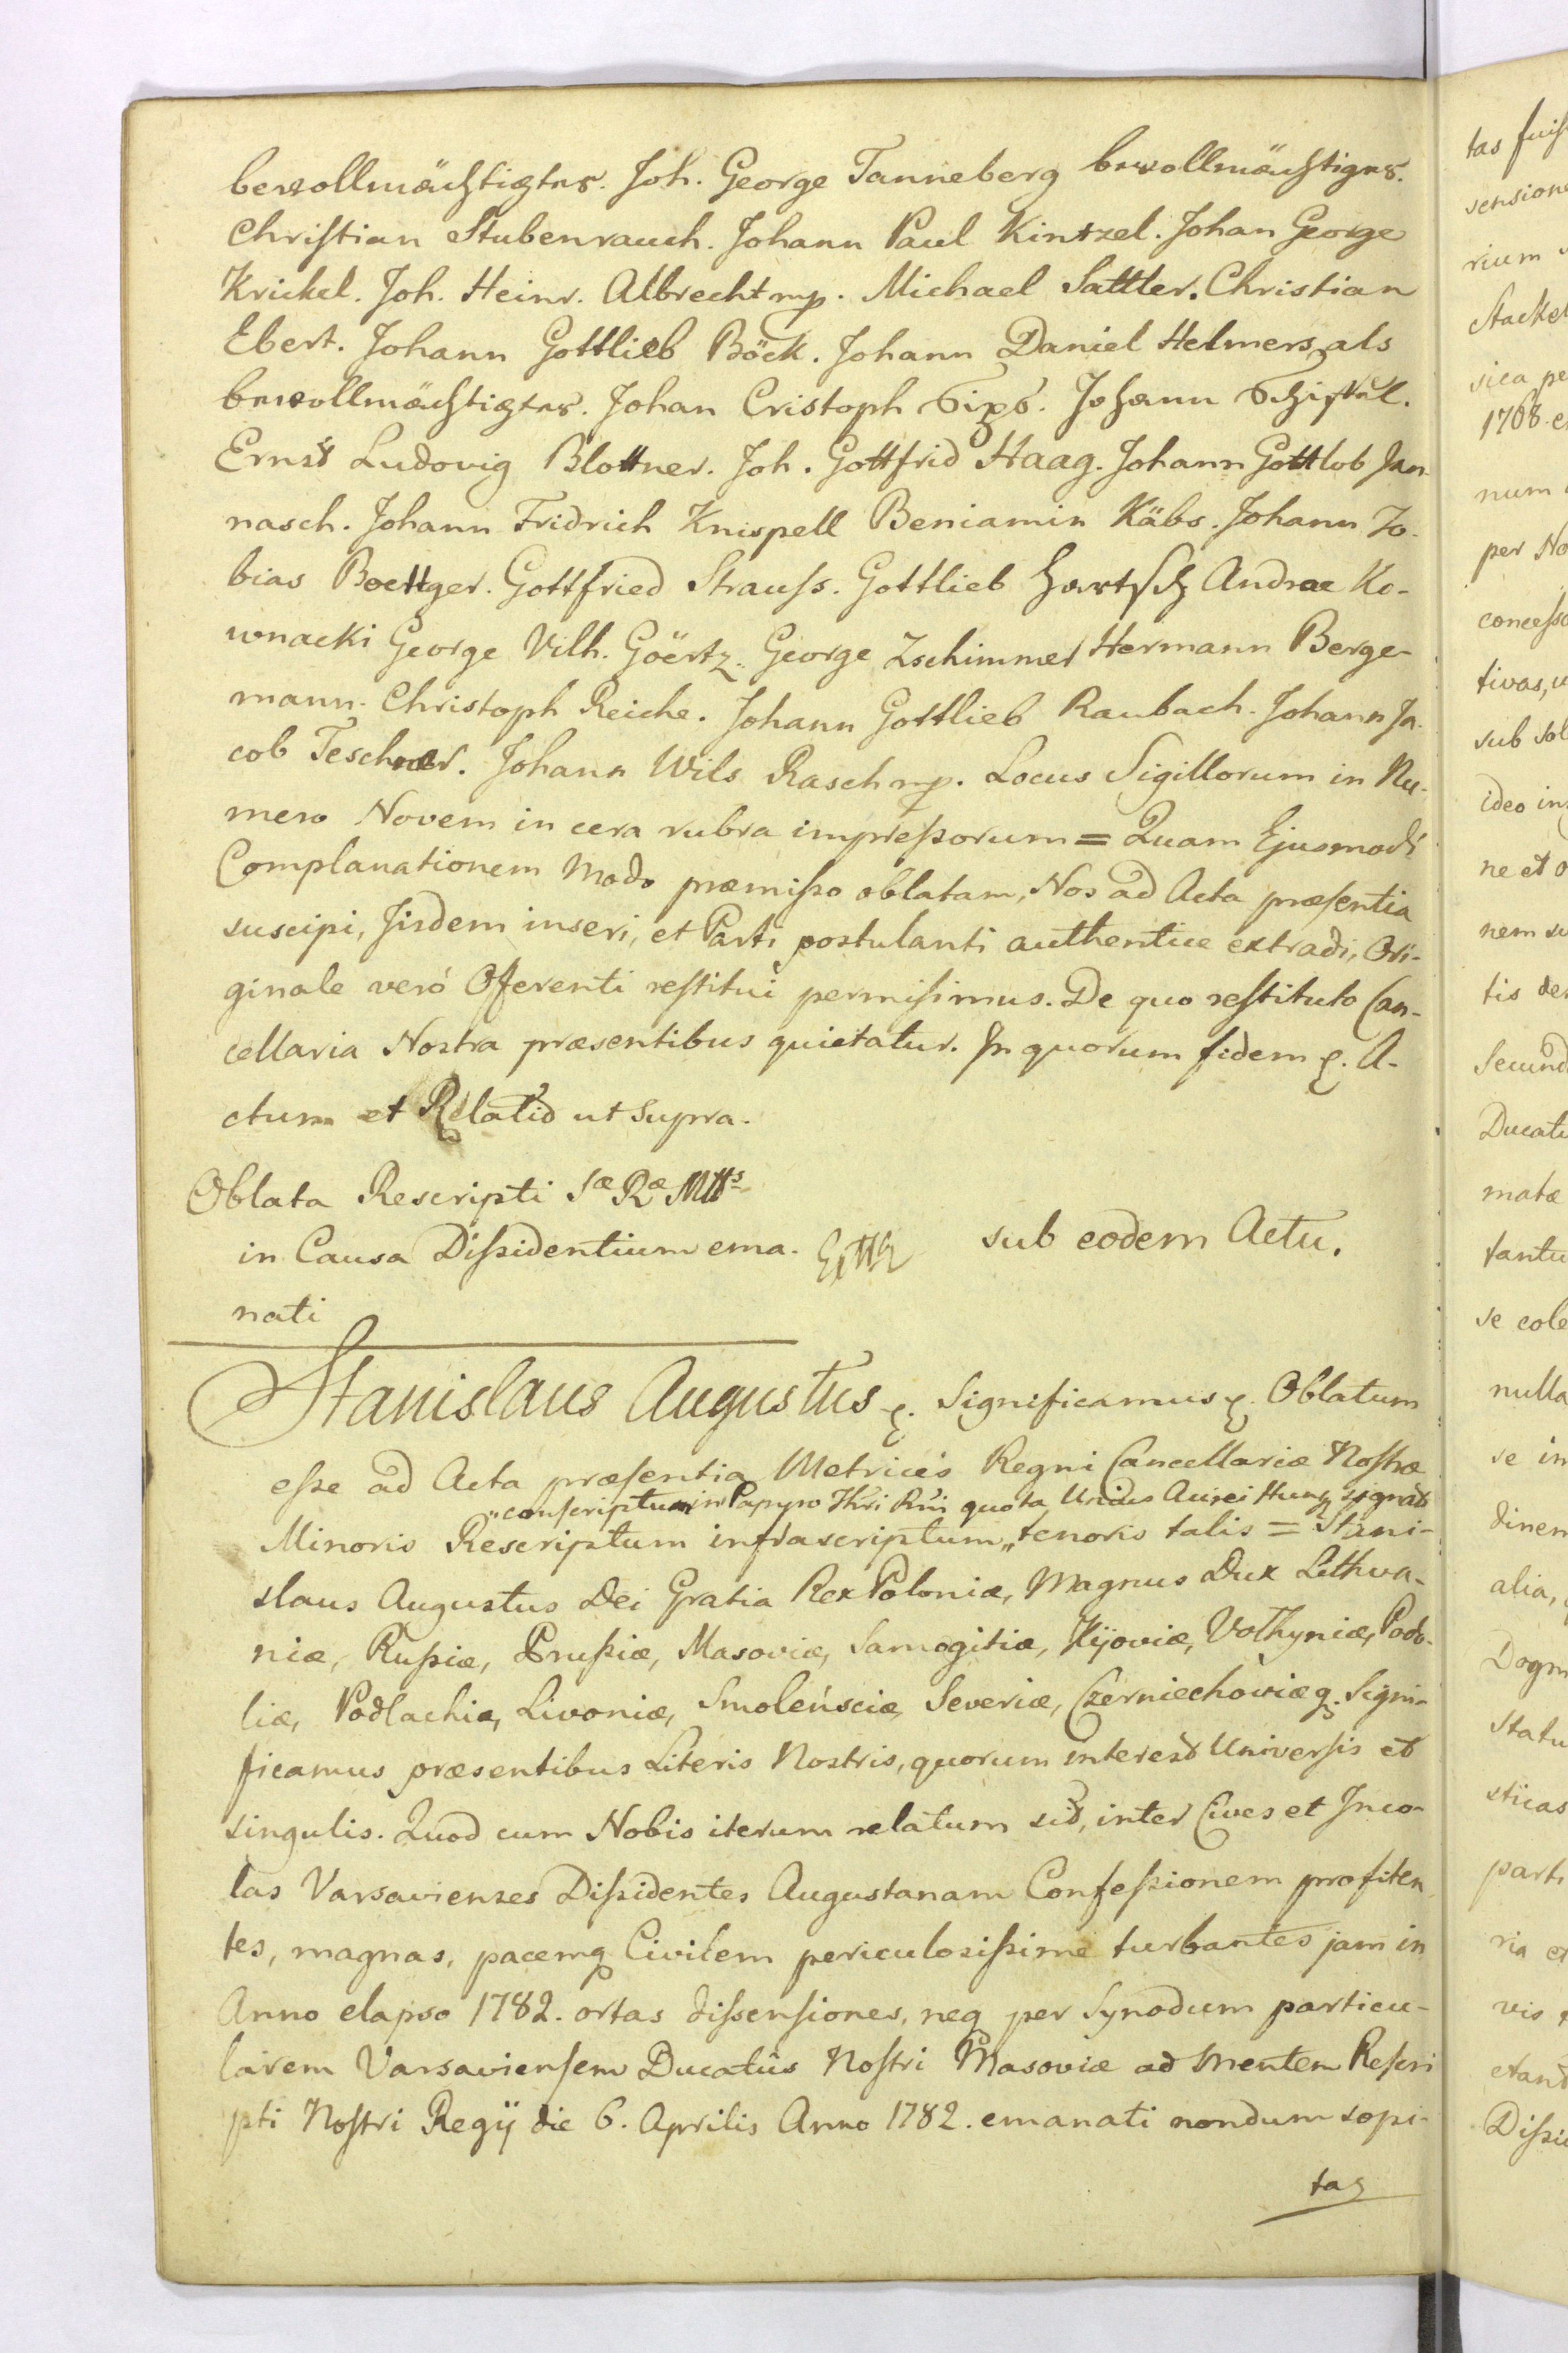 bevollmächtigter. Joh. George Tanneberg bevollmächtigter.
Christian Stubenrauch. Johann Paul Kintzel. Johan George
Krickel. Joh. Heinr. Albrecht mp. Michael Sattler. Christian
Ebert. Johann Gottlieb Böck. Johann Daniel Helmers als
bevollmächtigter. Johan Cristoph Johann
Ernst Ludovig Blottner. Joh. Gottfrid Haag. Johann Gottlob Jan-
nasch. Johann Fridrich Knispell Beniamin Käbs. Johann To-
bias Boettger. Gottfried Strauss. Gottlieb Hartsch Andrae Ko-
wnacki George Vilh. Göertz. George Zschimmer Hermann Berge-
mann. Christoph Reiche. Johann Gottlieb Raubach. Johann Ja-
cob Teschner. Johann Wils Rasch mp. Locus Sigillorum in Nu-
mero Novem in cera rubra impressorum = Quam Ejusmodi
Complanationem Modo præmisso oblatam, Nos ad Acta præsentia
suscipi, Jisdem inseri, et Parti postulanti authentice extradi, Ori-
ginale veró Oferenti restitui permisimus. De quo restituto Can-
cellaria Nostra præsentibus quietatur. In quorum fidem &. A-
ctum et Relatio ut supra.
Oblata Rescripti Sæ Ræ Mttis
in Causa Dissidentium ema-
nati
sub eodem Actu.
Stanislaus Augustus &. Significamus &. Oblatum
esse ad Acta præsentia Metrices Regni Cancellariæ Nostræ
"conscriptum in Papyro Thri Rni quota Unius Aurei Hung signato
Minoris Rescriptum infrascriptum" tenoris talis = Stani-
slaus Augustus Dei Gratia Rex Poloniæ, Magnus Dux Lithva-
niæ, Russiæ, Prussiæ, Masoviæ, Samogitiæ, Kijoviæ, Volhyniæ, Podo-
liæ, Podlachiæ, Livoniæ, Smolensciæ, Severiæ, Czerniechoviæq. Signi-
ficamus præsentibus Literis Nostris, quorum interest Universis et
singulis. Quod cum Nobis iterum relatum sit, inter Cives et Inco-
las Varsavienses Dissidentes Augustanam Confessionem profiten-
tes, magnas, pacemq Civilem periculosissime turbantes jam in
Anno elapso 1782. ortas dissensiones, neq per Synodum particu-
larem Varsaviensem Ducatûs Nostri Masoviæ ad mentem Rescri
pti Nostri Regij die 6. Aprilis Anno 1782. emanati nondum sopi-
tas